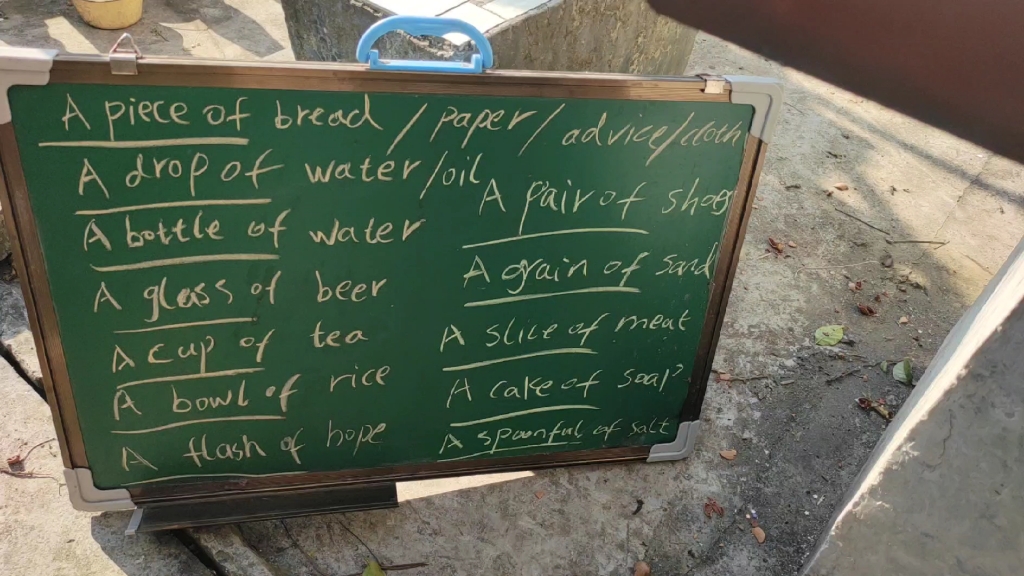 A piece of bread / paper / advice/cloth
A drop of water/oil
A bottle of water
A glass of beer
A cup of tea
A bowl of rice
A flash of hope
A pair of shoes
A grain of sand
A slice of meat
A cake of soap
A spoonful of salt